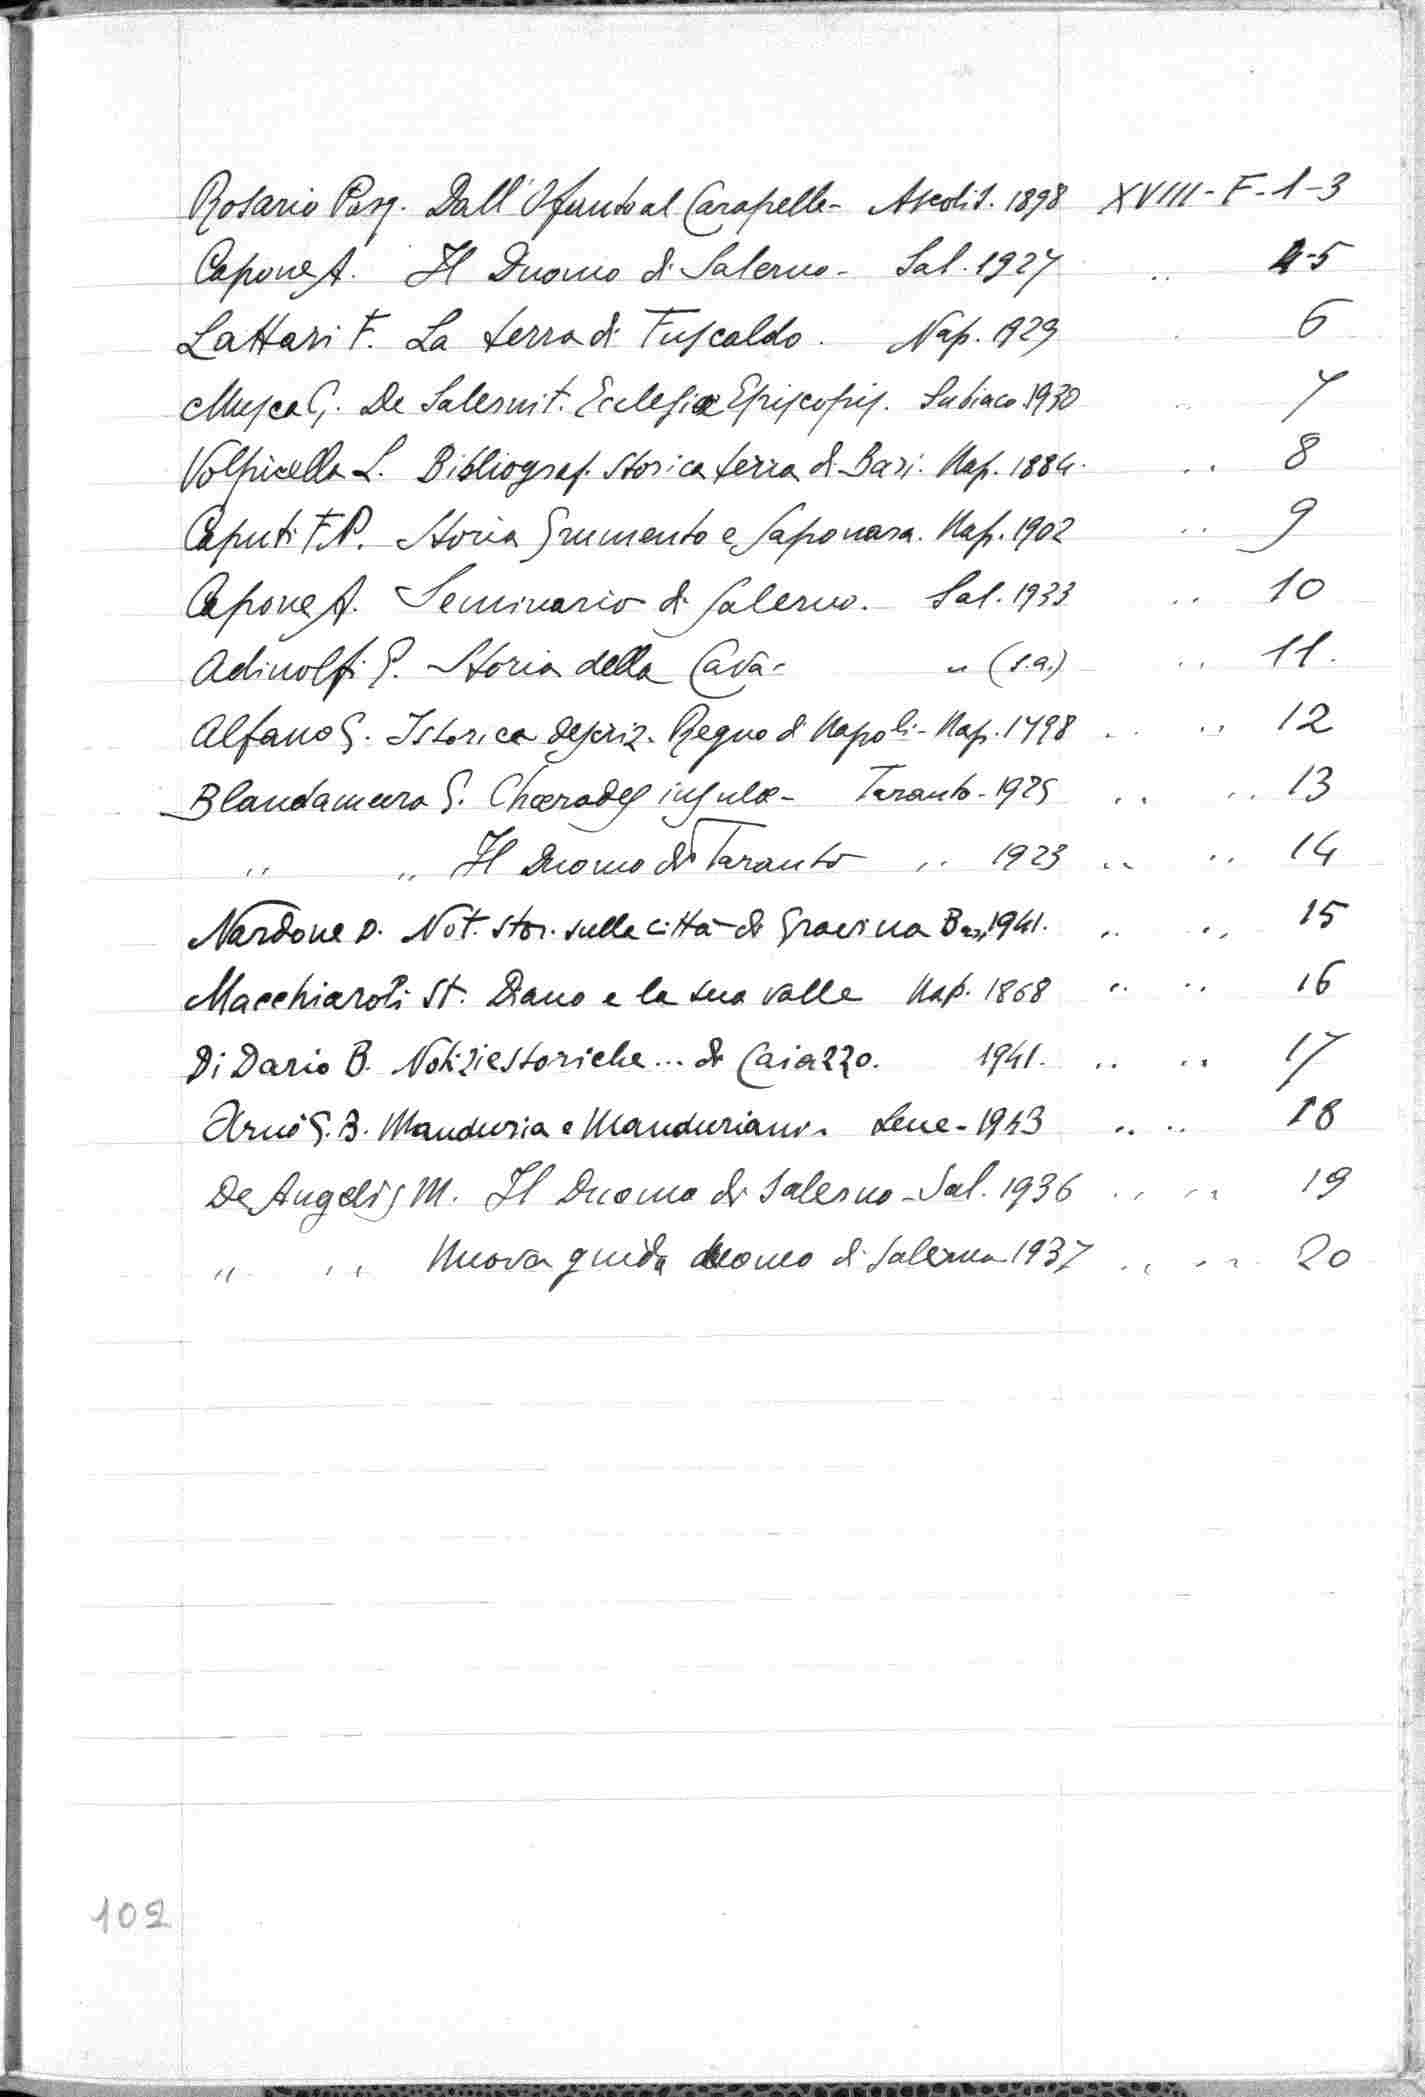 Rosario Pasq. Dall'Ofanto al Carapelle - Ascoli S. 1898 XVIII - F - 1-3
Capone A. Il Duomo di Salerno - Sal. 1927 " 4-5
Lattari F. La terra di Fuscaldo. Nap. 1929 6
Musca G. De Salernit. Ecclesiæ Episcopis. Subiaco 1930 " 7
Volpicella L. Bibliograf. storica terra di Bari. Nap. 1884. " 8
Caputi F.P. Storia Grumento e Saponara. Nap. 1902 " 9
Capone A. Seminario di Salerno. Sal. 1933 " 10
Adinolfi G. Storia della Cava - " (s.a.) " 11.
Alfano G. Istorica descriz. Regno di Napoli - Nap. 1798 " " 12
Blandamura G. Chœrades insulæ - Taranto - 1925 " " 13
" " Il Duomo di Taranto " 1923 " " 14
Nardone D. Not. stor. sulla città di Gravina Bari 1941. " " 15
Macchiaroli St. Diano e la sua valle Nap. 1868 " " 16
Di Dario B. Notizie storiche ... di Caiazzo. 1941. " " 17
Arnò G. B. Manduria e Manduriani. Lecce - 1943 " " 18
De Angelis M. Il Duomo di Salerno - Sal. 1936 " " 19
" " Nuova guida duomo di Salerno 1937 " " 20
102